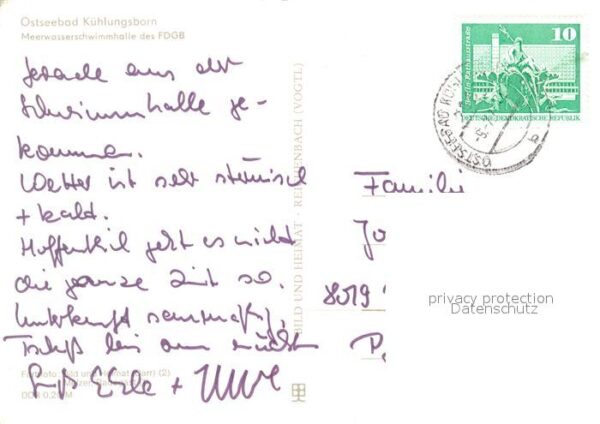 Ostseebad Kühlungsborn
Meerwasserschwimmhalle des FDGB
Gerade aus der
Schwimmhalle ge-
kommen.
Wetter ist sehr stürmisch
+ kalt.
Hoffentlich geht es nicht
die ganze Zeit so.
Unterkunft
Tschüß bis zum nächsten
Gruß + Uwe
BILD UND HEIMAT · REICHENBACH (VOGTL)
DDR 0,20 M
10
Berlin, Rathausstraße
DEUTSCHE DEMOKRATISCHE REPUBLIK
OSTSEEBAD
Familie
Jo
8019
privacy protection
Datenschutz